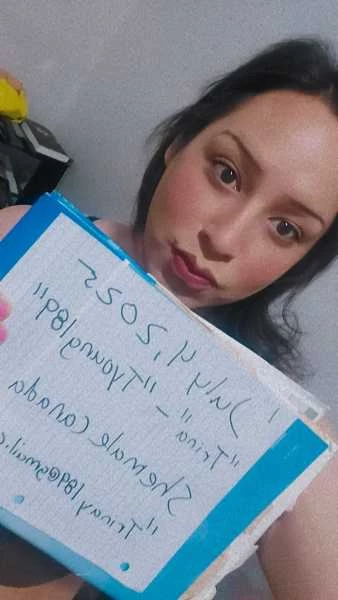 July 4, 2025
"Trina" - "Tyoung189"
Shemale Canada
"Trinay189@gmail.c